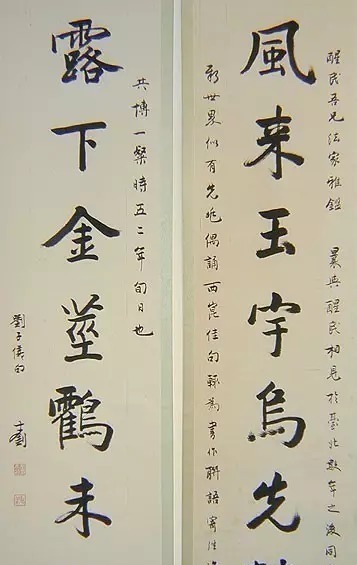 醒民吾兄法家雅鑒 曩與醒民相見於臺北數年之後同
風来玉宇烏先
新世界似有先兆偶誦西崑佳句輒為書作聯語寄
共博一粲時五二年旬日也
露下金莖鸖未
劉子